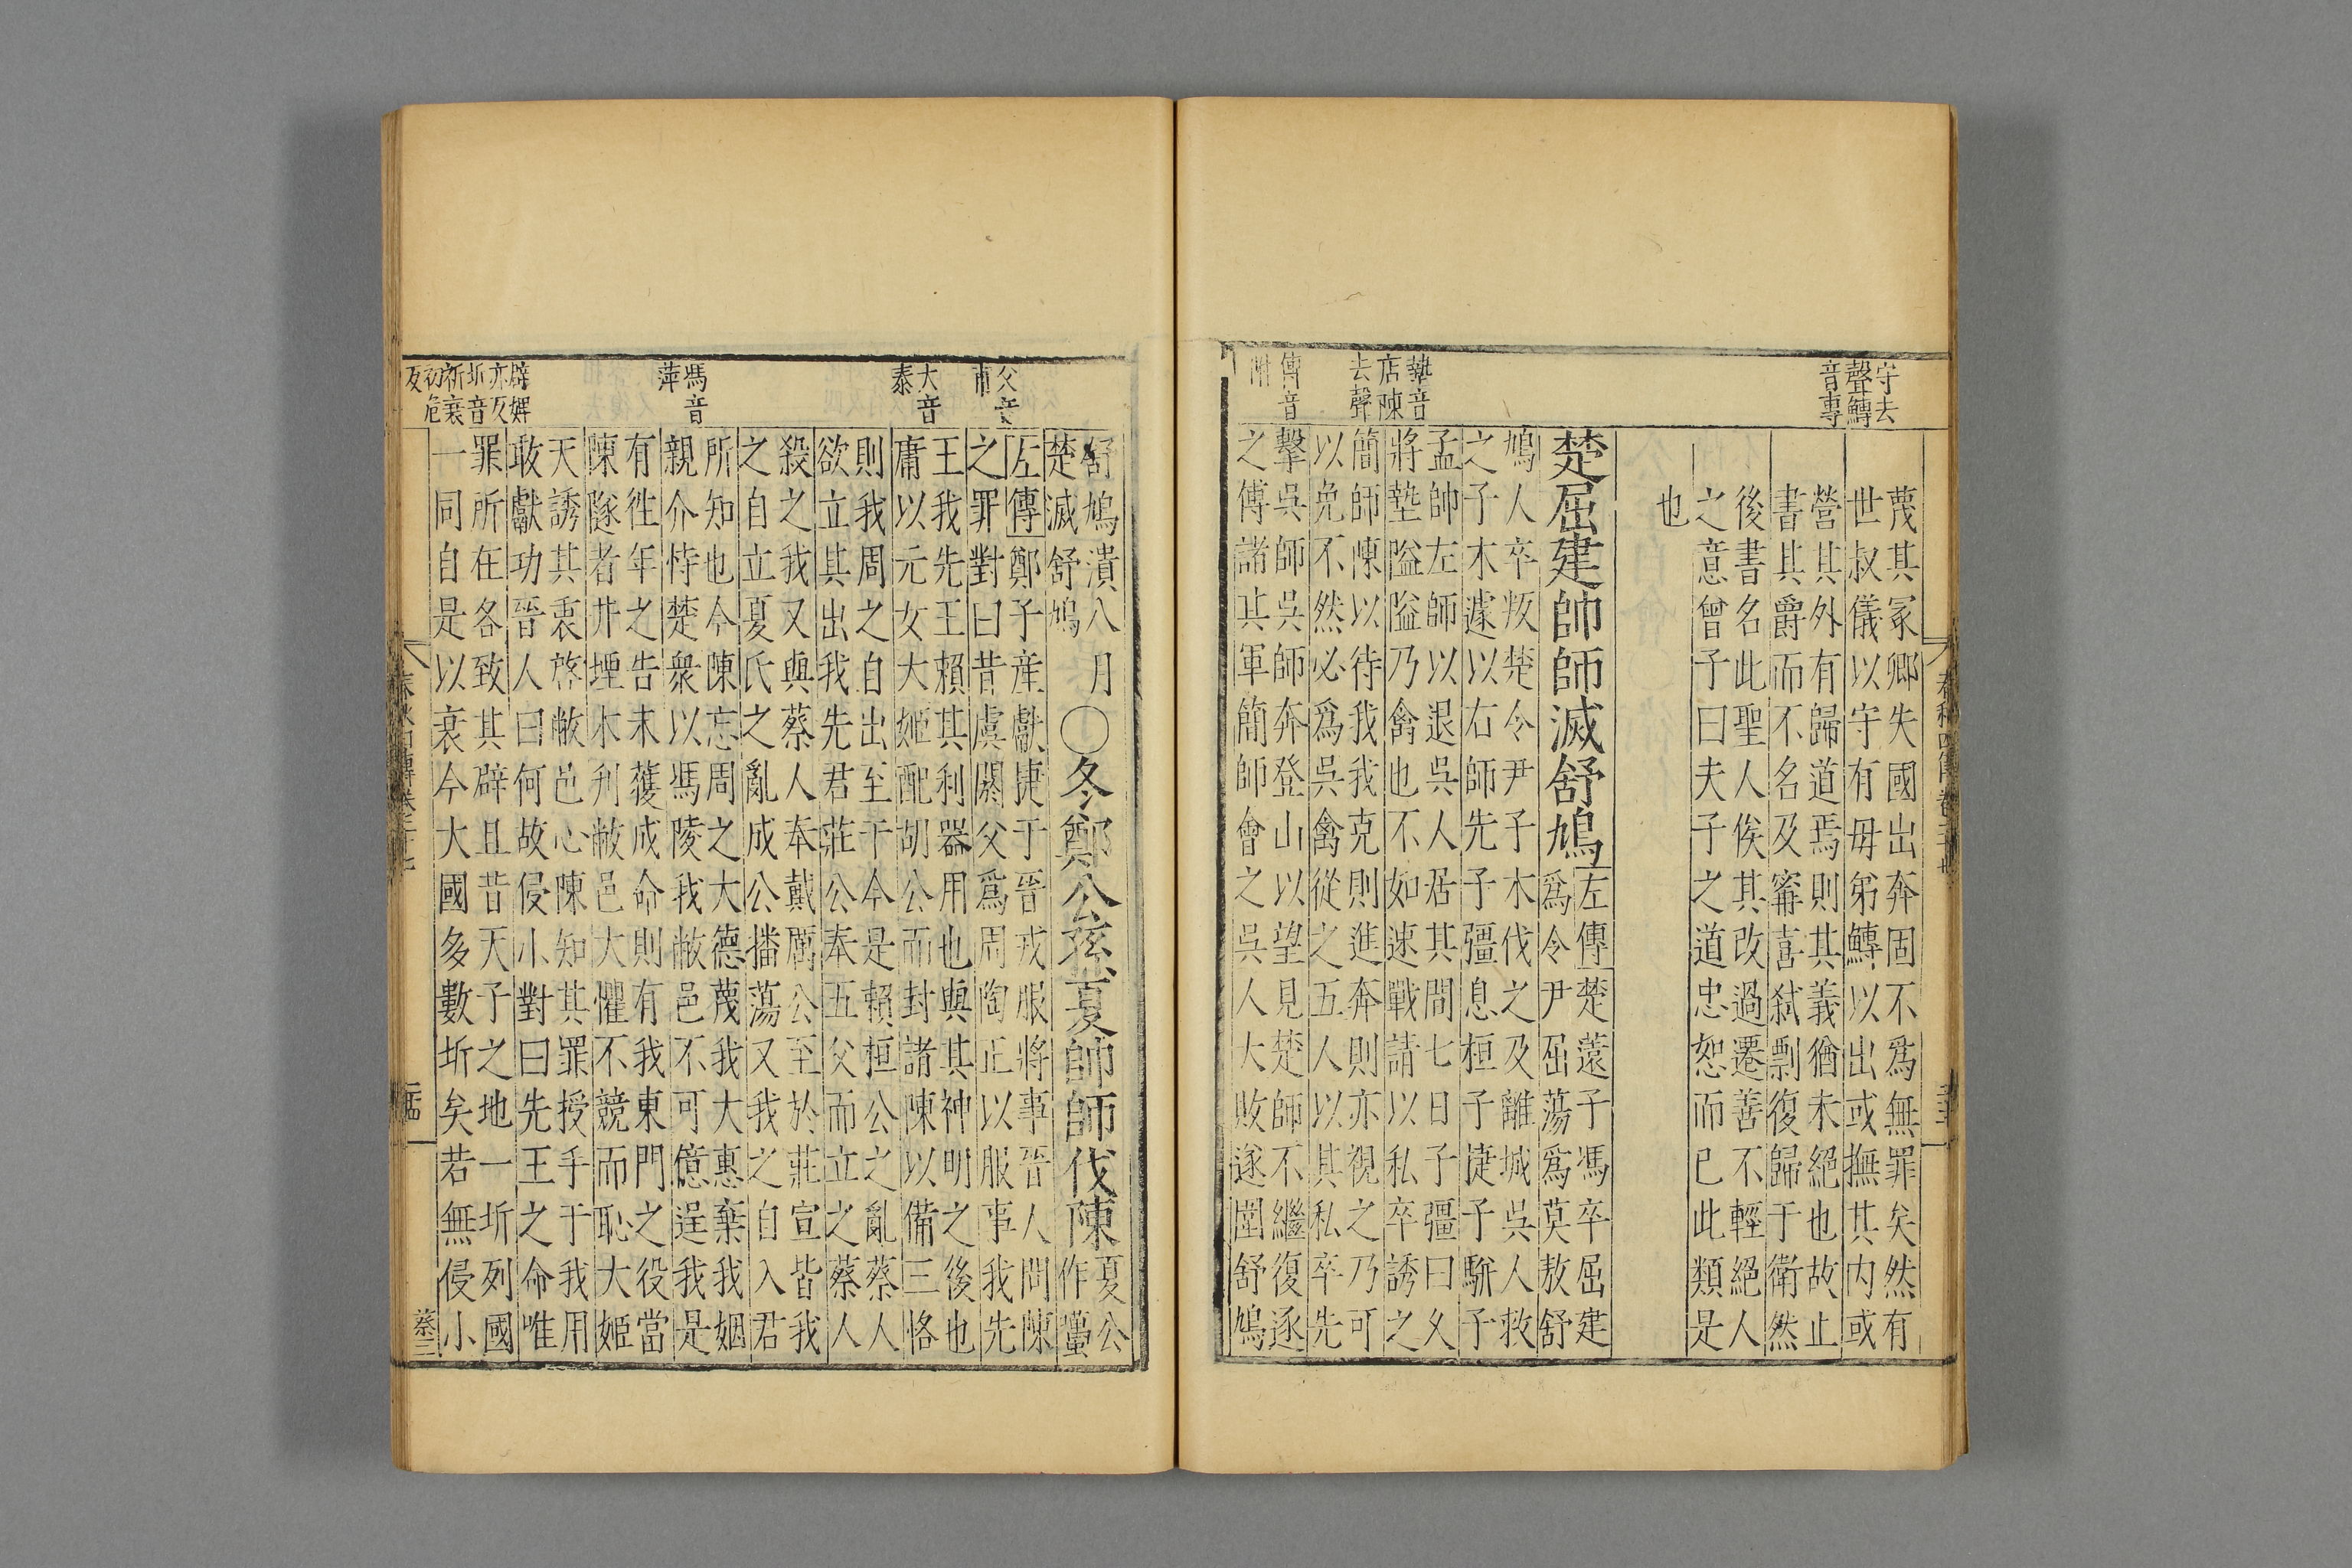 守去
聲鱄
音專
蔑其冢卿失國出奔固不為無罪矣然有
世叔儀以守有毋弟鱄以出或撫其内或
營其外有歸道焉則其義猶未絕也故止
書其爵而不名及甯喜弑剽復歸于衛然
後書名此聖人俟其改過遷善不輕絕人
之意曾子曰夫子之道忠恕而已此類是
也
墊音
店陳
去聲
傅音
附
楚屈建帥師滅舒鳩
左傳楚薳子馮卒屈建
為令尹屈蕩為莫敖舒
鳩人卒叛楚令尹子木伐之及離城吳人救
之子木遽以右師先子彊息桓子捷子駢子
孟帥左師以退吳人居其間七日子彊曰乆
將墊隘隘乃禽也不如速戰請以私卒誘之
簡師陳以待我我克則進奔則亦視之乃可
以免不然必為吳禽從之五人以其私卒先
擊吳師吳師奔登山以望見楚師不繼復逐
之傅諸其軍簡師會之吳人大敗遂圍舒鳩
父音
甫
大音
泰
馮音
萍
辟婢
亦反
圻音
祈衰
初危
反
舒鳩潰八月
楚滅舒鳩
○冬鄭公孫夏帥師伐陳
夏公
作蠆
左傳鄭子產獻捷于晉戎服將事晉人問陳
之罪對曰昔虞閼父為周陶正以服事我先
王我先王賴其利器用也與其神明之後也
庸以元女大姬配胡公而封諸陳以備三恪
則我周之自出至于今是賴桓公之亂蔡人
欲立其出我先君莊公奉五父而立之蔡人
殺之我又與蔡人奉戴厲公至於莊宣皆我
之自立夏氏之亂成公播蕩又我之自入君
所知也今陳忘周之大德蔑我大惠棄我姻
親介恃楚衆以馮陵我敝邑不可億逞我是
有徃年之告未獲成命則有我東門之役當
陳隧者井堙木刋敝邑大懼不競而恥大姬
天誘其衷啓敝邑心陳知其罪授手于我用
敢獻功晉人曰何故侵小對曰先王之命唯
罪所在各致其辟且昔天子之地一圻列國
一同自是以衰今大國多數圻矣若無侵小